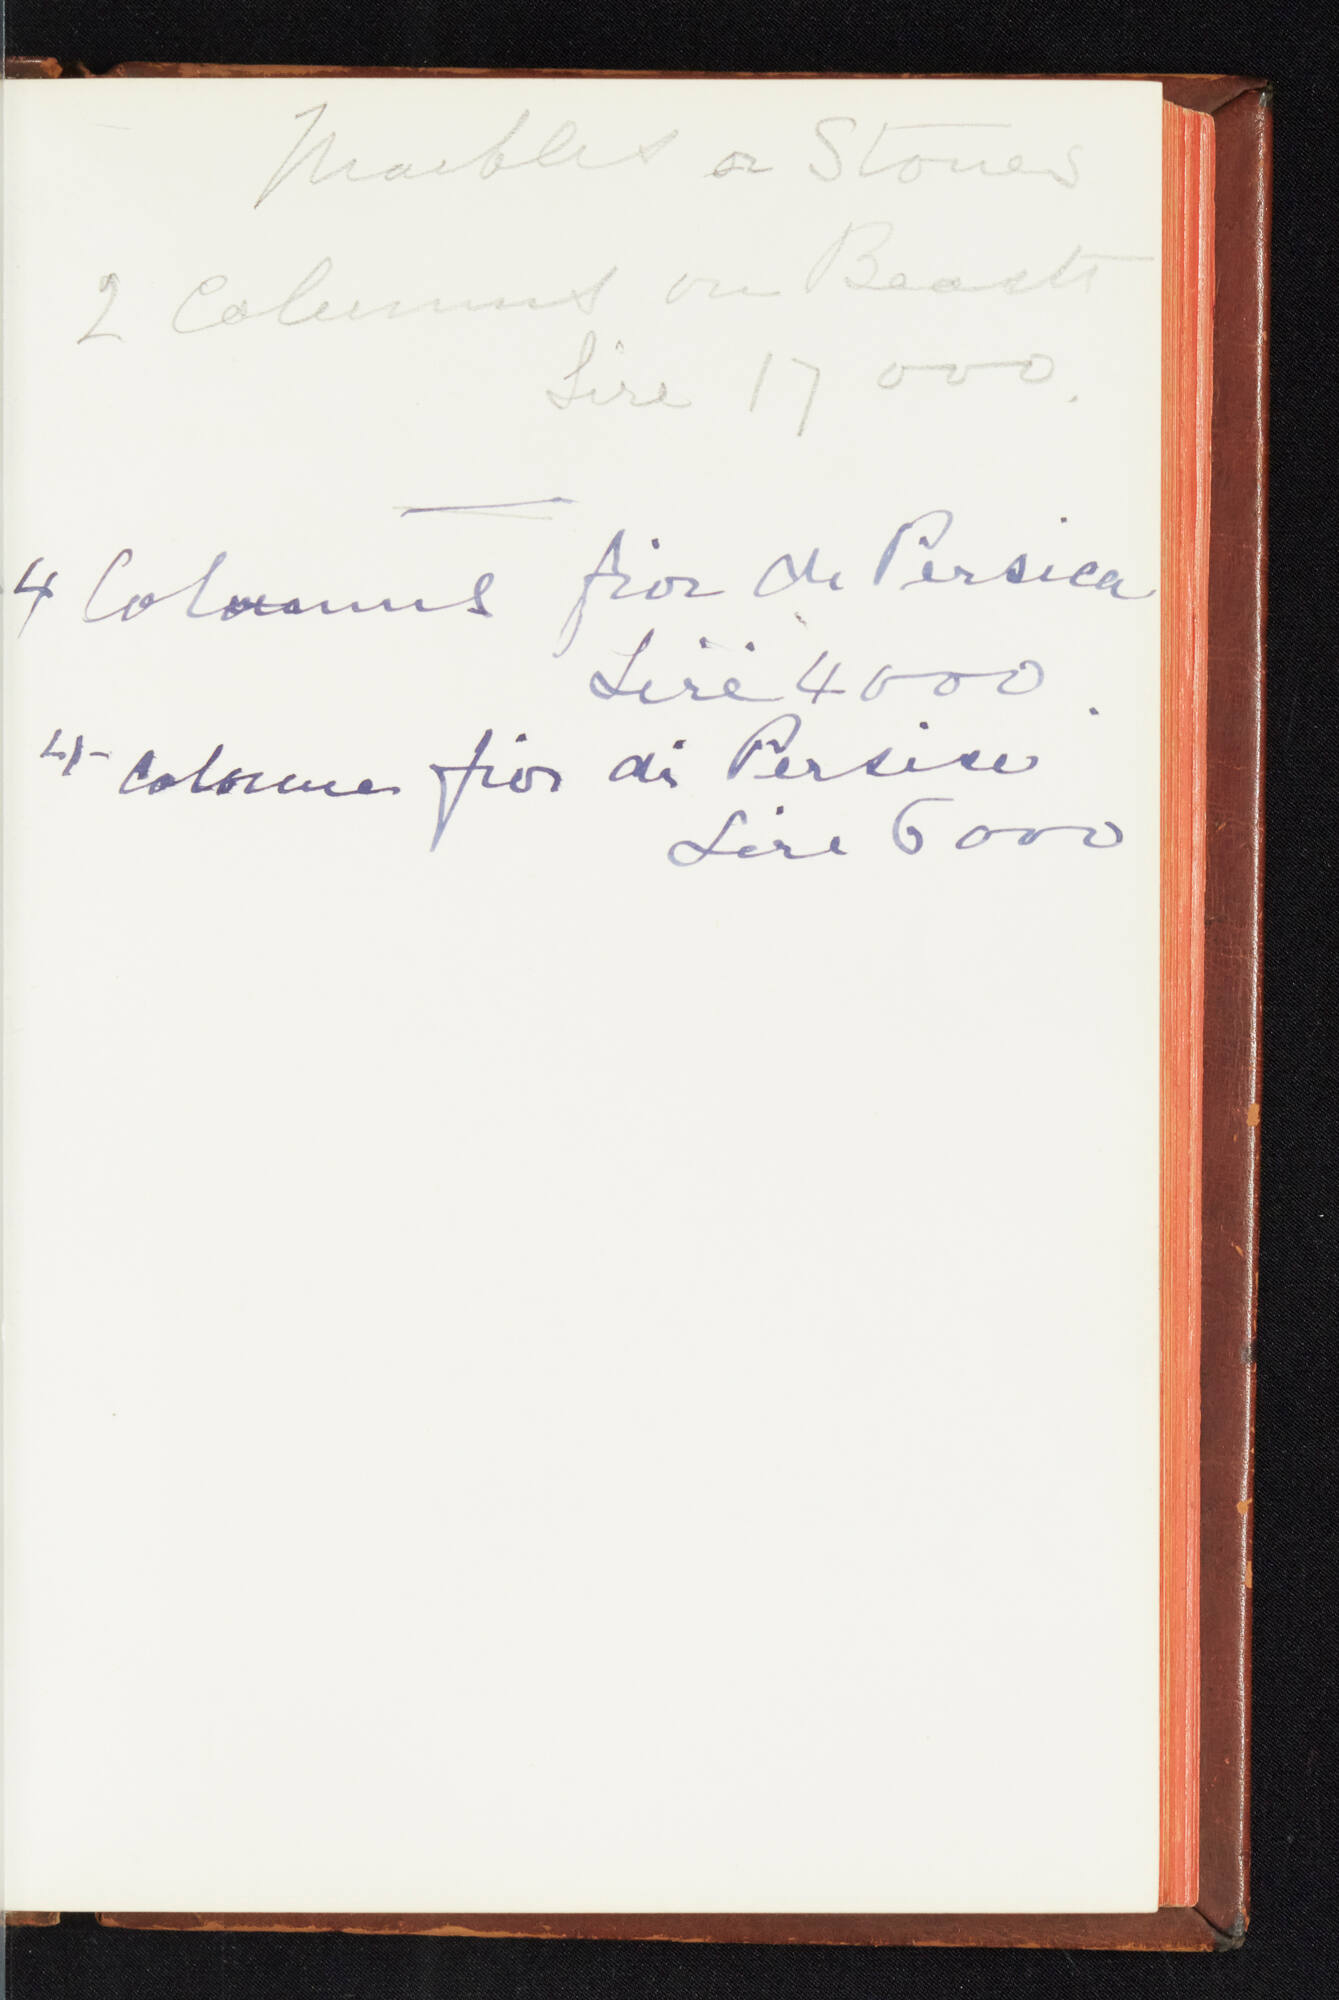 Marbles or Stones
2 Columns on Beasts
Lire 17000.
4 Colonnns fior di Persica
Lire 4000.
4 colonne fior di Persici
Lire 6000